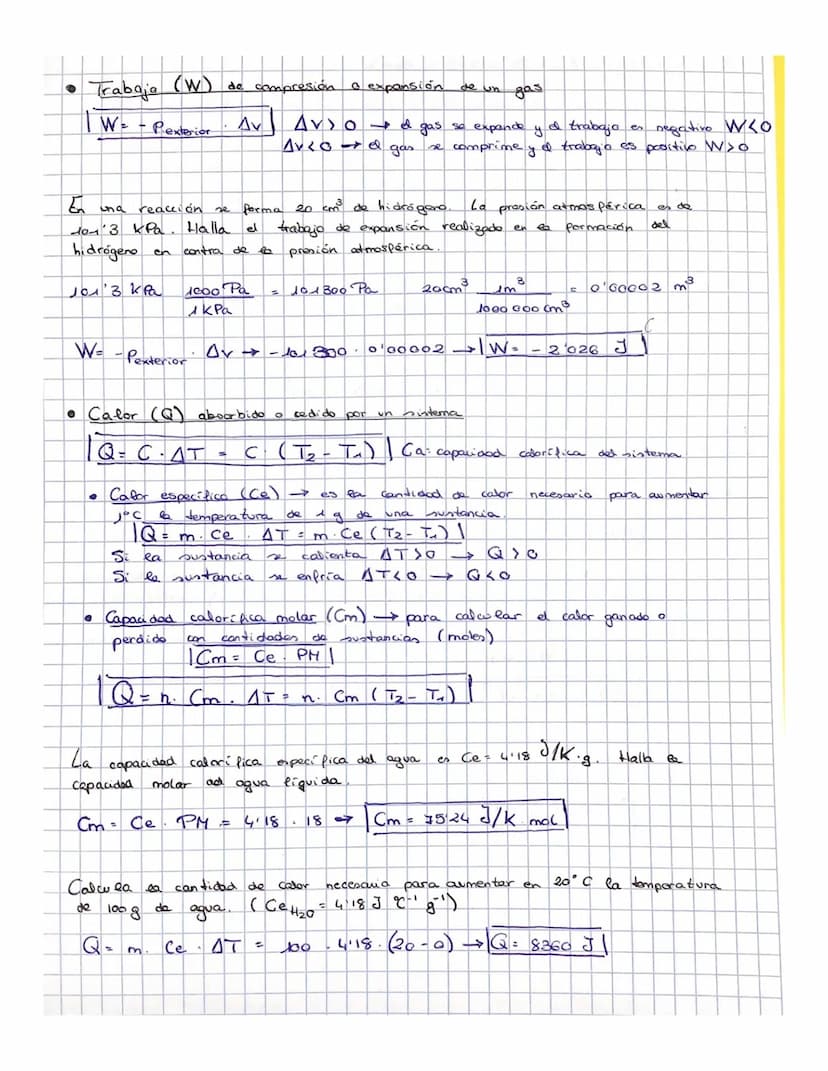 • Trabajo (W) de compresión o expansión de un gas
W = - Pexterior · Δv   Δv > 0 → el gas se expande y el trabajo es negativo W<0
Δv < 0 → el gas se comprime y el trabajo es positivo W>0
En una reacción se forma 20 cm³ de hidrógeno. La presión atmosférica es de
101'3 kPa. Halla el trabajo de expansión realizado en la formación del
hidrógeno en contra de la presión atmosférica.
101'3 kPa 1000 Pa / 1 kPa = 101300 Pa   20cm³ 1m³ / 1000 000 cm³ = 0'00002 m³
W = - Pexterior · Δv → - 101 300 · 0'00002 → W = - 2'026 J
• Calor (Q) absorbido o cedido por un sistema
Q = C · ΔT = C · (T₂ - T₁)   Ca: capacidad calorífica del sistema
• Calor específico (Ce) → es la cantidad de calor necesario para aumentar
1°C la temperatura de 1 g de una sustancia.
Q = m · Ce · ΔT = m · Ce (T₂ - T₁)
Si la sustancia se calienta ΔT>0 → Q>0
Si la sustancia se enfría ΔT<0 → Q<0
• Capacidad calorífica molar (Cm) → para calcular el calor ganado o
perdido con cantidades de sustancias (moles)
Cm = Ce · PM
Q = n · Cm · ΔT = n · Cm (T₂ - T₁)
La capacidad calorífica específica del agua es Ce = 4'18 J/K·g. Halla la
capacidad molar del agua líquida.
Cm = Ce · PM = 4'18 · 18 → Cm = 75'24 J/K mol
Calcula la cantidad de calor necesaria para aumentar en 20°C la temperatura
de 100g de agua. (Ce H₂O = 4'18 J °C⁻¹ g⁻¹)
Q = m · Ce · ΔT = 100 · 4'18 · (20 - 0) → Q = 8360 J